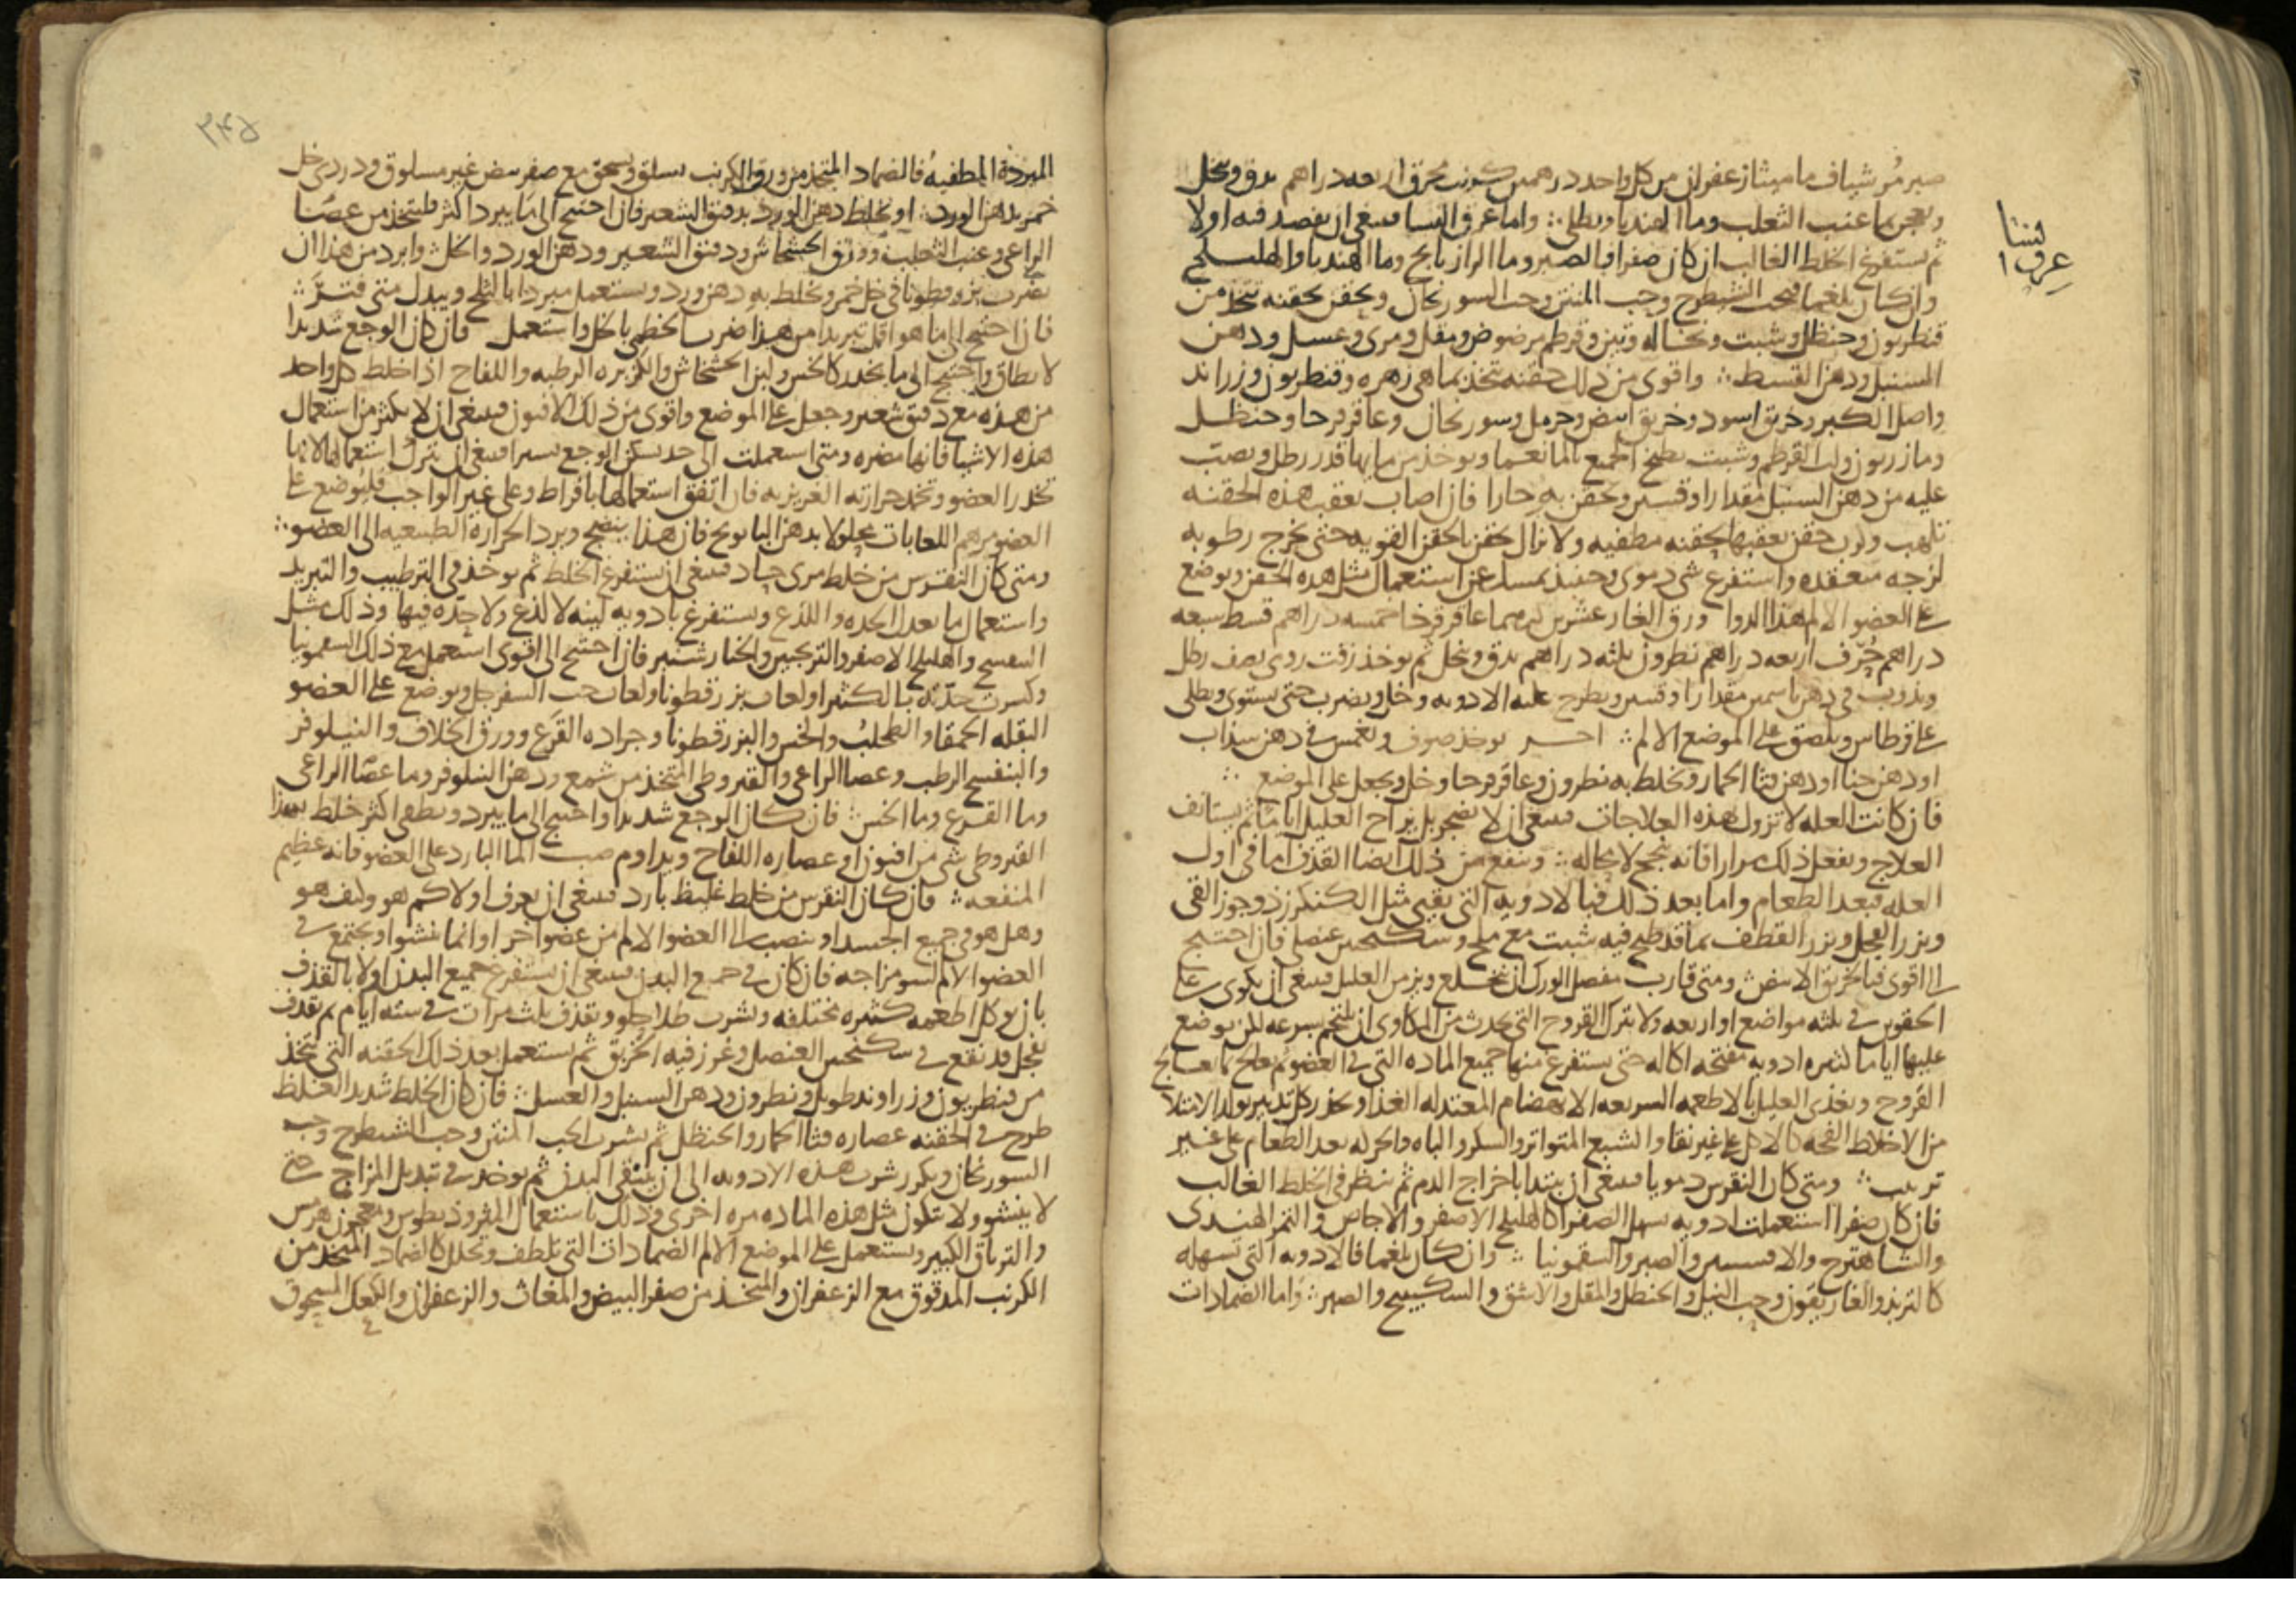 صبر مر شياف ماميثا زعفران من كل واحد درهمين محرق اربعه دراهم يدق وينخل
ويعجن بما عنب الثعلب وما الهندبا ويطلى ∴ واما عرق النسا فينبغي ان يفصد فيه اولا
عرق النسا
ثم يستفرغ الخلط الغالب ان كان صفرا فبالصبر وما الرازيانج وما الهندبا والهليلج
وان كان بلغما فبحب الشيطرج وحب المنتن وحب السورنجان ويحقن بحقنه تتخذ من
قنطريون وحنظل وشبت ونخاله وتين وقرطم مرضوض ومقل ومري وعسل ودهن
السنبل ودهن القسط ∴ واقوى من ذلك حقنه تتخذ بماهي زهره وقنطريون وزراوند
واصل الكبر وخربق اسود وخربق ابيض وحرمل وسورنجان وعاقرقرحا وحنظل
ومازريون ولب القرطم وشبت يطبخ الجميع بالما نعما ويوخذ من مايها قدر رطل ويصب
عليه من دهن السنبل مقدار اوقيتين ويحقن به حارا فان اصاب بعقب هذه الحقنه
تلهب وكرب حقن بعقبها بحقنه مطفيه ولا يزال يحقن بالحقن القويه حتى يخرج رطوبه
لزجه منعقده واستفرغ شي دموي وحينيذ يمسك عن استعمال مثل هذه الحقن ويوضع
على العضو الالم هذا الدوا ورق الغار عشرين درهما عاقرقرحا خمسه دراهم قسط سبعه
دراهم حرف اربعه دراهم نطرون ثلثه دراهم يدق وينخل ثم يوخذ زفت رومي نصف رطل
ويذوب في دهن ياسمين مقدار اوقيتين ويطرح عليه الادويه وخل ويضرب حتى يستوى ويطلى
على قرطاس ويلصق على الموضع الالم ∴ اخر يوخذ صوف ويغمس في دهن سذاب
او دهن حنا او دهن قثا الحمار ويخلط به نطرون وعاقرقرحا وخل ويجعل على الموضع ∴
فان كانت العله لا تزول بهذه العلاجات فينبغي ان لا يضجر بل يراح العليل اياما ثم يستانف
العلاج ويفعل ذلك مرارا فانه ينجح لا محاله ∴ وينفع من ذلك ايضا القذف اما في اول
العله فبعد الطعام واما بعد ذلك فبالادويه التي تقيي مثل الكنكرزد وجوز القي
وبزر الفجل وبزر القطف بما قد طبخ فيه شبت مع ملح وسكنجبين عنصلى فان احتيج
الى اقوى فبالخربق الابيض ∴ ومتى قارب مفصل الورك ان ينخلع ويزمن العليل فينبغي ان يكوى على
الحقوين في ثلثه مواضع او اربعه ولا يترك القروح التي تحدث من المكاوى ان تلتحم بسرعه لكن يوضع
عليها اياما كثيره ادويه مفتحه اكاله حتى يستفرغ منها جميع الماده التي في العضو ثم يعالج بما يعالج
القروح ويغذى العليل بالاطعمه السريعه الانهضام المعتدله الغذا ويحذر كل تدبير يولد الامتلا
من الاخلاط الفجه كالاكل على غير نقا والشبع المتواتر والسكر والباه والحركه بعد الطعام على غير
ترتيب ∴ ومتى كان النقرس دمويا فينبغي ان يبتدا باخراج الدم ثم ينظر في الخلط الغالب
فان كان صفرا استعملت ادويه تسهل الصفرا كالهليلج الاصفر والاجاص والتمر الهندى
والشاهترج والافسنتين والصبر والسقمونيا ∴ وان كان بلغما فالادويه التي تسهله
كالتربد والغاريقون وحب النيل والحنظل والمقل والاشق والسكبينج والصبر ∴ واما الضمادات
٣٤٥
المبردة المطفيه فالضماد المتخذ من ورق الكرنب يسلق ويسحق مع صفر بيض غير مسلوق ودردي خل
خمر بدهن الورد ∴ او يخلط دهن الورد بدقيق الشعير فان احتيج الى ما يبرد اكثر فليتخذ من عصا
الراعى وعنب الثعلب وورق الخشخاش ودقيق الشعير ودهن الورد والخل ∴ وابرد من هذا ان
يضرب بزرقطونا في خل خمر ويخلط به دهن ورد ويستعمل مبردا بالثلج ويبدل متى فتر ∴
فان احتيج الى ما هو اقل تبريدا من هذا ضرب الخطمي بالخل واستعمل فان كان الوجع شديدا
لا يطاق واحتيج الى ما يخدر كالخس ولبن الخشخاش والكزبره الرطبه واللفاح اذا خلط كل واحد
من هذه مع دقيق شعير وجعل على الموضع واقوى من ذلك الافيون فينبغي ان لا يكثر من استعمال
هذه الاشيا فانها مضره ومتى استعملت الى حد يسكن الوجع يسيرا فينبغي ان يترك استعمالها لانها
تخدر العضو وتخمد حرارته الغريزيه فان اتفق استعمالها بافراط وعلى غير الواجب فليوضع على
العضو مرهم اللعابات محلولا بدهن البابونج فان هذا ينضج ويرد الحرارة الطبيعيه الى العضو ∴
ومتى كان النقرس من خلط مري حاد فينبغي ان يستفرغ الخلط ثم يوخذ في الترطيب والتبريد
واستعمال ما يعدل الحده واللذع ويستفرغ بادويه لينه لا لذع ولا حدة فيها وذلك مثل
البنفسج والهليلج الاصفر والترنجبين والخيارشنبر فان احتيج الى اقوى استعمل مع ذلك السقمونيا
وكسرت حدته بالكثيرا ولعاب بزرقطونا ولعاب حب السفرجل ويوضع على العضو
البقله الحمقا والطحلب والخس والبزرقطونا وجراده القرع وورق الخلاف والنيلوفر
والبنفسج الرطب وعصا الراعي والقيروطي المتخذ من شمع ودهن النيلوفر وما عصا الراعي
وما القرع وما الخس ∴ فان كان الوجع شديدا واحتيج الى ما يبرد ويطفى اكثر خلط بهذا
القيروطي شي من افيون او عصاره اللفاح ويداوم صب الما البارد على العضو فانه عظيم
المنفعه ∴ فان كان النقرس من خلط غليظ بارد فينبغي ان يعرف اولا كم هو وكيف هو
وهل هو في جميع الجسد او ينصب الى العضو الالم من عضو اخر او انما ينشوا ويجتمع في
العضو الالم لسو مزاجه فان كان في جميع البدن فينبغي ان يستفرغ جميع البدن اولا بالقذف
بان يوكل اطعمه كثيره مختلفه ويشرب طلا حلو ويقذف ثلث مرات في سته ايام ثم يقذف
بفجل قد نقع في سكنجبين العنصل وغرز فيه الخربق ثم يستعمل بعد ذلك الحقنه التي تتخذ
من قنطريون وزراوند طويل ونطرون ودهن السنبل والعسل ∴ فان كان الخلط شديد الغلظ
طرح في الحقنه عصاره قثا الحمار والحنظل ثم يشرب الحب المنتن وحب الشيطرج وحب
السورنجان ويكرر شرب هذه الادويه الى ان ينقى البدن ثم يوخذ في تبديل المزاج حتى
لا ينشوو ولا يتكون مثل هذه الماده مره اخرى وذلك باستعمال المثروذيطوس ومعجون هرمس
والترياق الكبير ويستعمل على الموضع الالم الضمادات التي تلطف وتحلل كالضماد المتخذ من
الكرنب المدقوق مع الزعفران والمتخذ من صفر البيض والمغاث والزعفران والكعك المسحوق